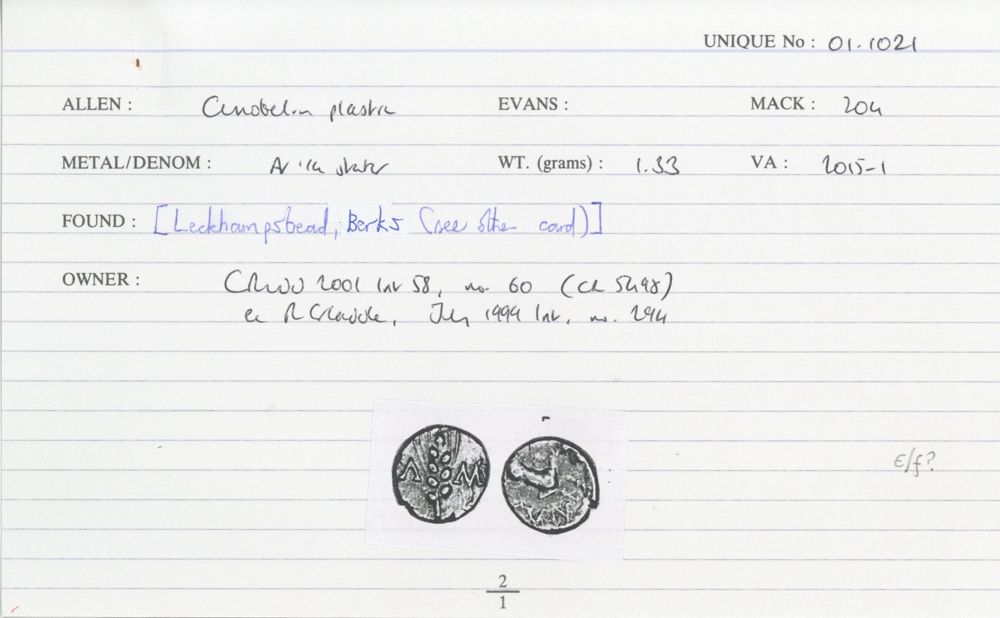 UNIQUE No : 01.1021
ALLEN : Cunobelin plastic EVANS : MACK : 204
METAL/DENOM : AV 1/4 stater WT. (grams) : 1.33 VA : 2015-1
FOUND : [Leckhampstead, Berks (see other card)]
OWNER : 2001 58, no. 60 (CR 5498)
ex R July 1999 no. 294
Λ M
VN
€/f?
2
1